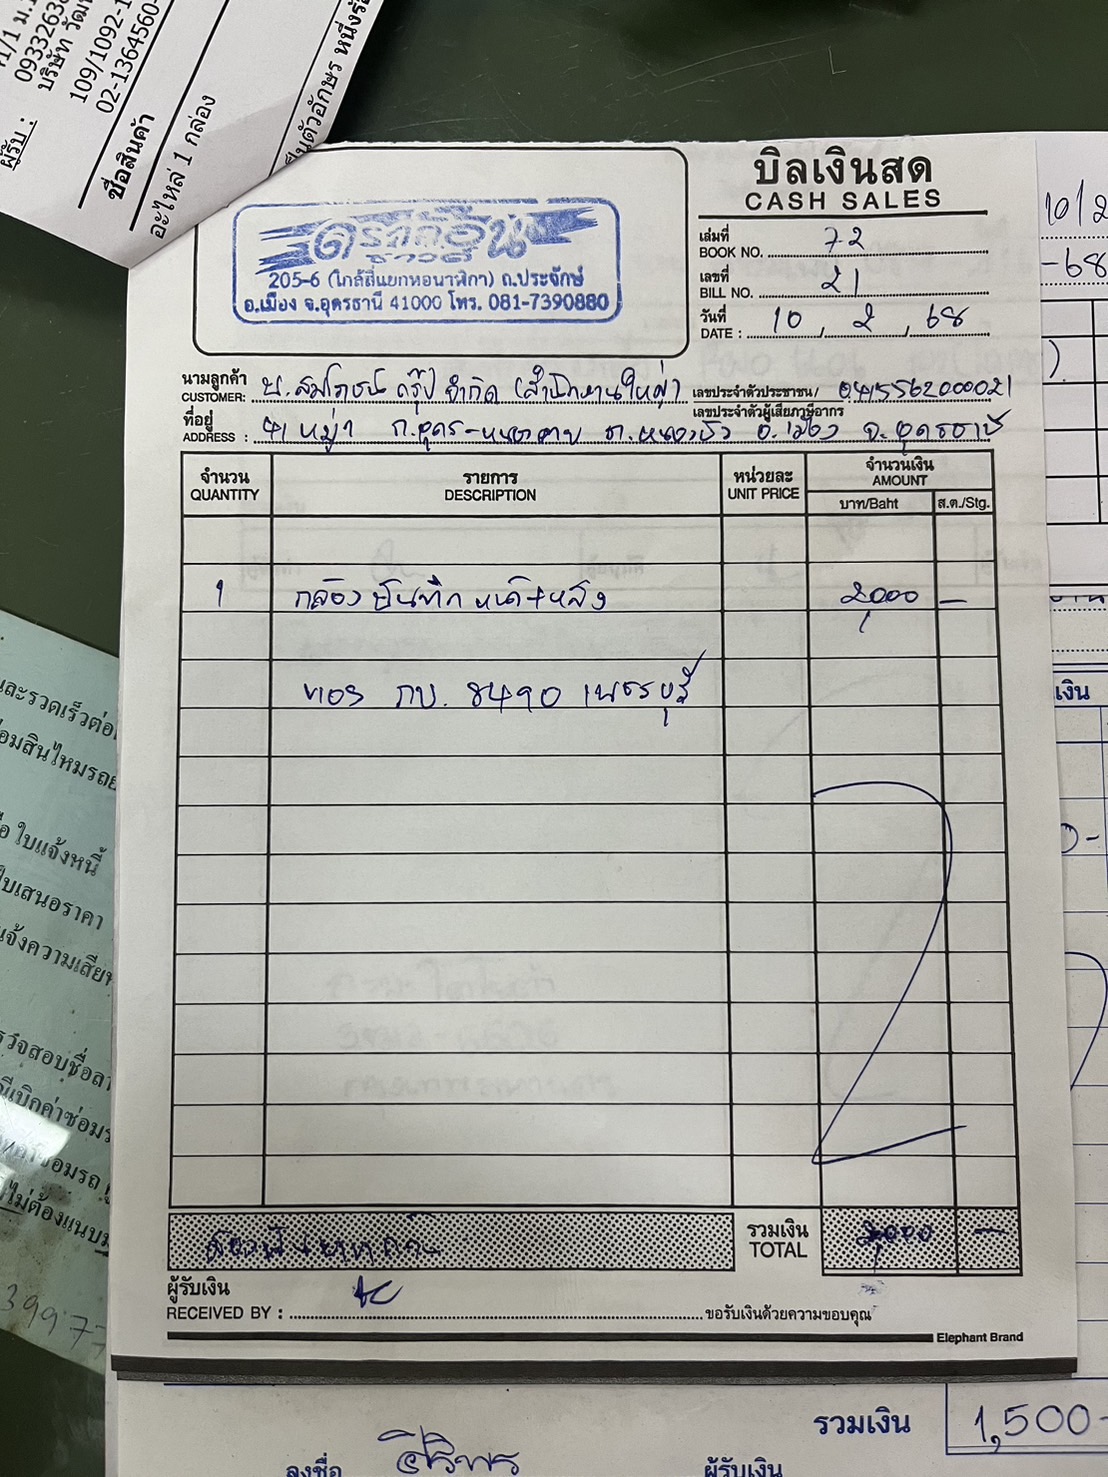 ผู้รับ :
109/1092-1
02-1364560-
ชื่อสินค้า
อะไหล่ 1 กล่อง
เป็นตัวอักษร หนึ่งร้อ
บิลเงินสด
CASH SALES
เล่มที่
BOOK NO. 72
เลขที่
BILL NO. 21
วันที่
DATE : 10 / 2 / 68
ดราก้อน
ซาวด์
205-6 (ใกล้สี่แยกหอนาฬิกา) ถ.ประจักษ์
อ.เมือง จ.อุดรธานี 41000 โทร. 081-7390880
นามลูกค้า
CUSTOMER: บ. สมโภชน์ กรุ๊ป จำกัด (สำนักงานใหญ่) เลขประจำตัวประชาชน/ 0415562000021
เลขประจำตัวผู้เสียภาษีอากร
ที่อยู่
ADDRESS : 41 หมู่1 ถ.อุดร-หนองคาย ต.หนองบัว อ.เมือง จ.อุดรธานี
จำนวน รายการ หน่วยละ จำนวนเงิน
QUANTITY DESCRIPTION UNIT PRICE AMOUNT
บาท/Baht ส.ต./Stg.
1 กล้องบันทึก หน้า+หลัง 2,000 -
กบ. 8490 เพชรบุรี
รวมเงิน
TOTAL 2,000 -
สองพันบาทถ้วน
ผู้รับเงิน
RECEIVED BY : ขอรับเงินด้วยความขอบคุณ
Elephant Brand
และรวดเร็วต่อ
ใบแจ้งหนี้
ใบเสนอราคา
39977
รวมเงิน 1,500-
ลงชื่อ ศิริพร ผู้รับเงิน